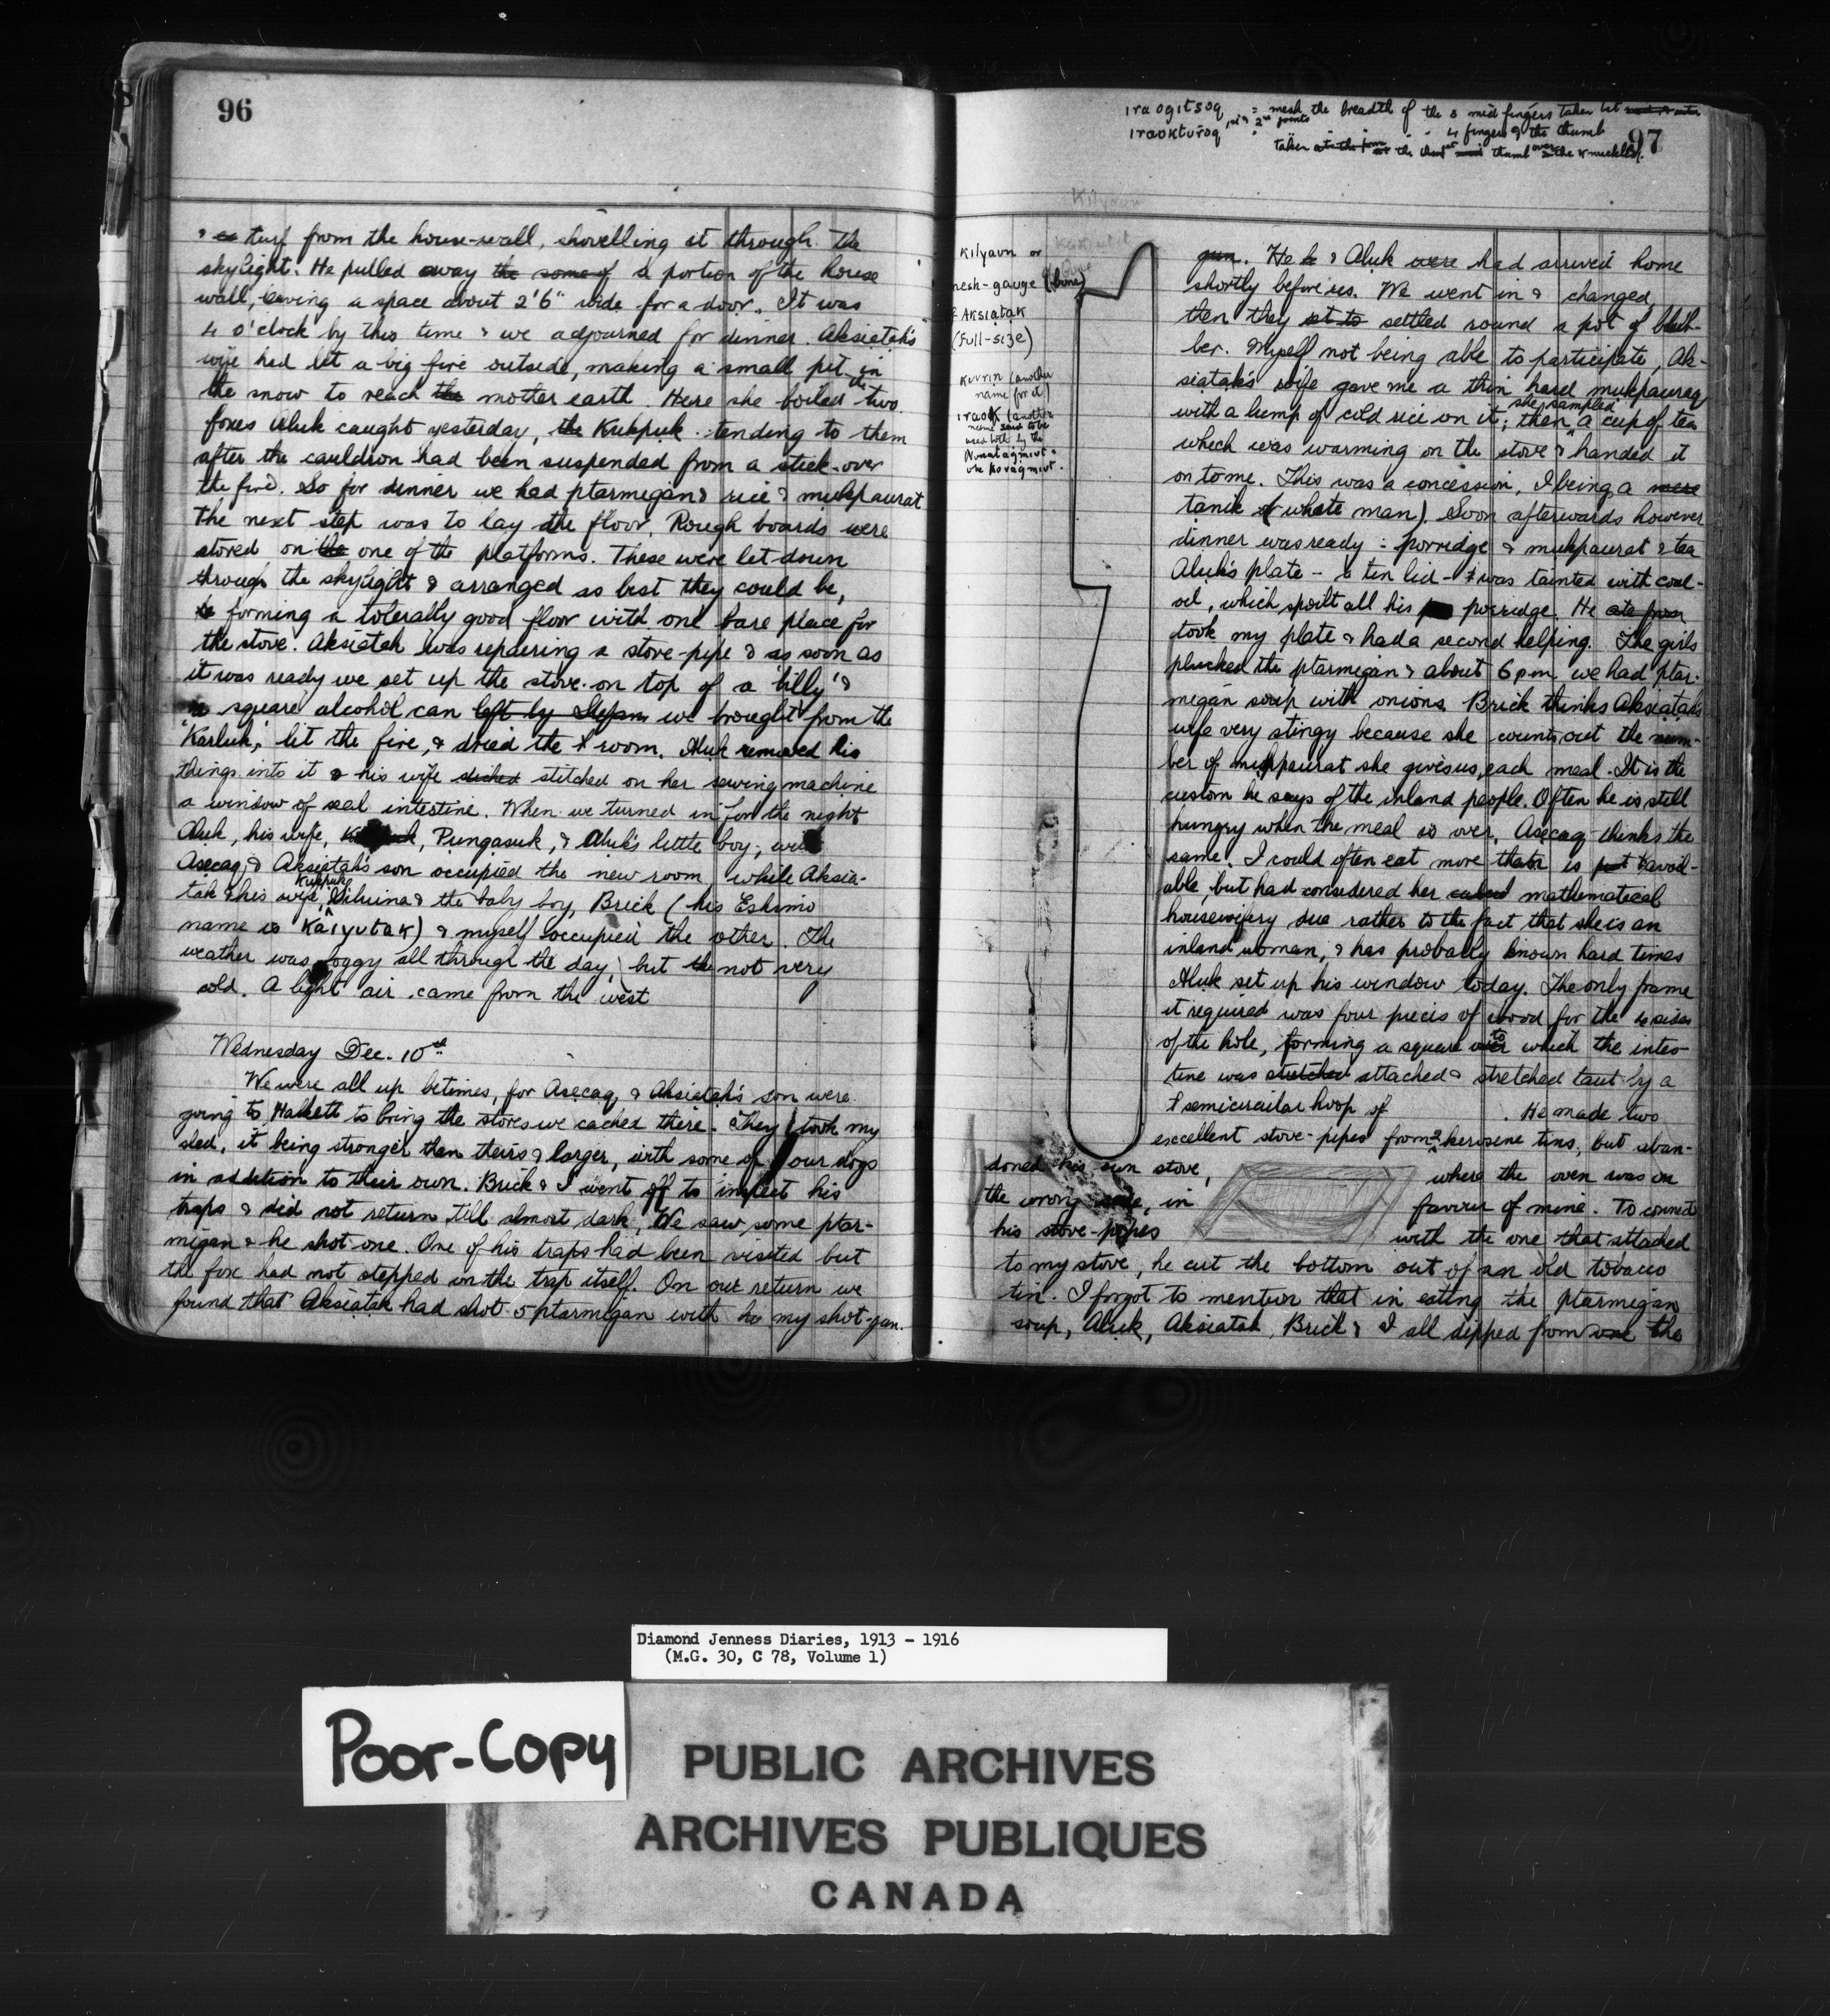 96
& turf from the house-wall, shovelling it through the
skylight. He pulled away the some of a portion of the house
wall, leaving a space about 2'6" wide for a door. It was
4 o'clock by this time & we adjourned for dinner. Aksiatak's
wife had lit a big fire outside, making a small pit in
the snow to reach the mother earth. Here she boiled the two
foxes Aluk caught yesterday, the Kukpuk tending to them
after the cauldron had been suspended from a stick over
the fire. So for dinner we had ptarmigan & rice & mukpaurat
The next step was to lay the floor. Rough boards were
stored on the one of the platforms. These were let down
through the skylight & arranged as best they could be,
forming a tolerably good floor with one bare place for
the stove. Aksiatak was repairing a stove-pipe & as soon as
it was ready we set up the stove on top of a 'billy' &
a square alcohol can left by Stefans we brought from the
'Karluk', lit the fire, & dried the room. Aluk removed his
things into it & his wife stitched on her sewing machine
a window of seal intestine. When we turned in for the night
Aluk, his wife, Pungasuk, & Aluk's little boy, with
Asecaq & Aksiatak's son occupied the new room while Aksia-
tak & his wife, Kukpuk, & the baby boy, Brick (his Eskimo
name is Kaiyutak) & myself occupied the other. The
weather was foggy all through the day, but the not very
cold. A light air came from the west
Wednesday Dec. 10th
We were all up betimes, for Asecaq & Aksiatak's son were
going to Halkett to bring the stores we cached there. They took my
sled, it being stronger than theirs & larger, with some of our dogs
in addition to their own. Brick & I went off to inspect his
traps & did not return till almost dark. We saw some ptar-
migan & he shot one. One of his traps had been visited but
the fox had not stepped on the trap itself. On our return we
found that Aksiatak had shot 5 ptarmigan with my shot-gun.
iraogitsoq = mesh the breadth of the 3 mid fingers taken
iraokturoq
4 fingers & the thumb
taken at the thumb over the knuckles.
97
Kilyaun
Kilyaun or
mesh-gauge (bone)
Aksiatak
(Full-size)
Kuvrin (another
name for it)
iraok (another
name said to be
used both by the
Nunatagmiut &
gun. He & Aluk were had arrived home
shortly before us. We went in & changed,
then they set to settled round a pot of blub-
ber. Myself not being able to participate, Ak-
siatak's wife gave me a thin hard mukpauraq
with a lump of cold rice on it; then she sampled a cup of tea
which was warming on the stove & handed it
on to me. This was a concession, I being a were
tanik (white man). Soon afterwards however
dinner was ready: porridge & mukpaurat & tea
Aluk's plate - a tin lid - was tainted with coal-
oil, which spoilt all his porridge. He ate from
took my plate & had a second helping. The girls
plucked the ptarmigan & about 6 pm we had ptar-
migan soup with onions. Brick thinks Aksiatak's
wife very stingy because she counts out the num-
ber of mukpaurat she gives us each meal. It is the
custom he says of the inland people. Often he is still
hungry when the meal is over. Asecaq thinks the
same. I could often eat more than is put avail-
able, but had considered her mathematical
housewifery due rather to the fact that she is an
inland woman, & has probably known hard times
Aluk set up his window today. The only frame
it required was four pieces of wood for the 4 sides
of the hole, forming a square to which the intes-
tine was stretched attached & stretched taut by a
semicircular hoop of . He made two
excellent stove-pipes from 2 kerosene tins, but aban-
doned his own stove, where the oven was on
the wrong side, in favour of mine. To connect
his stove-pipes with the one that attached
to my stove, he cut the bottom out of an old tobacco
tin. I forgot to mention that in eating the ptarmigan
soup, Aluk, Aksiatak, Brick & I all dipped from one the
Diamond Jenness Diaries, 1913 - 1916
(M.G. 30, C 78, Volume 1)
Poor-Copy
PUBLIC ARCHIVES
ARCHIVES PUBLIQUES
CANADA